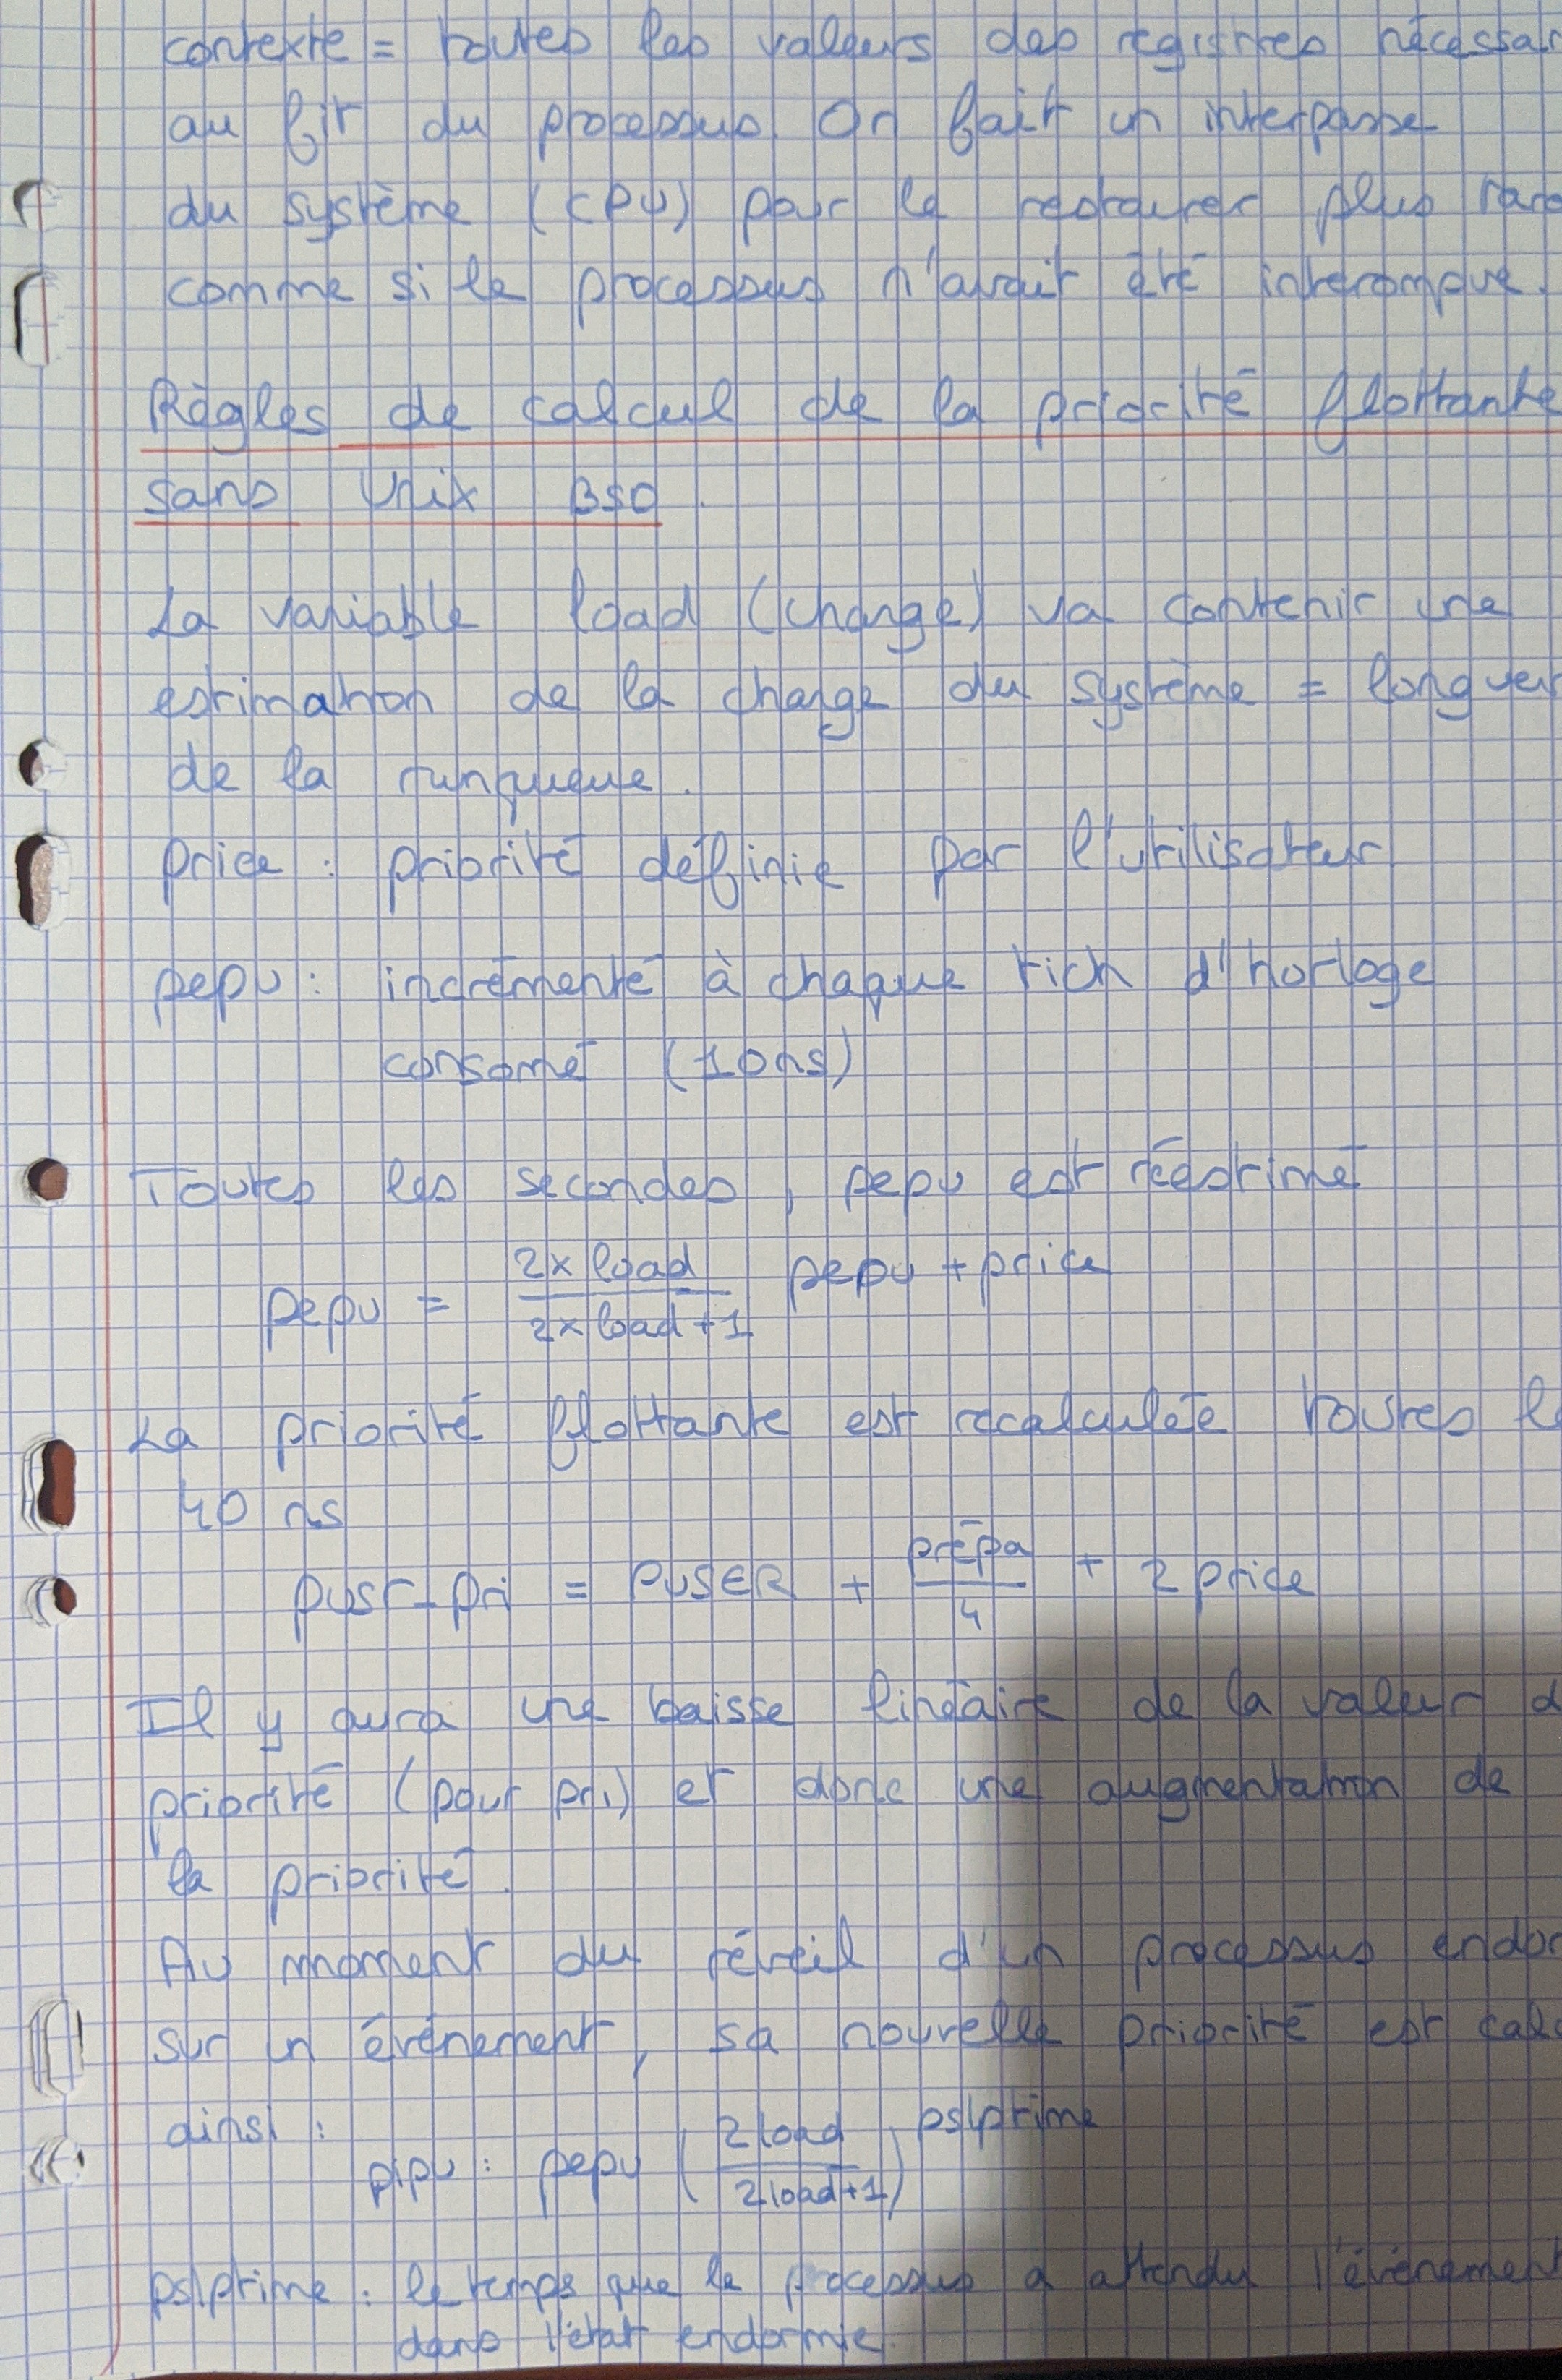 contexte = toutes les valeurs des registres nécessair
au fit du processus On fait un interpasse
du système (CPU) pour le restaurer plus tard
comme si le processus n'avait été interompue.
Règles de calcul de la priorité flottante
sans Unix BSD.
La variable load (charge) va contenir une
estimation de la charge du système = longueur
de la runqueue.
price : priorité définie par l'utilisateur
pepu : incrémenté à chaque tich d'horloge
consomé (10ns)
Toutes les secondes, pepu est réestimé
pepu = \frac{2x load}{2x load+1} pepu + price
La priorité flottante est recalculée toutes le
40 ns
pusr-pri = PUSER + \frac{prépa}{4} + 2 price
Il y aura une baisse linéaire de la valeur d
priorité (pour pri) et donc une augmentation de
la priorité.
Au moment du réveil d'un processus endor
sur un événement, sa nouvelle priorité est calc
ainsi :
pipu : pepu (\frac{2load}{2load+1}) pslprime
pslprime : le temps que le processus a attendu l'événement
dans l'état endormie.